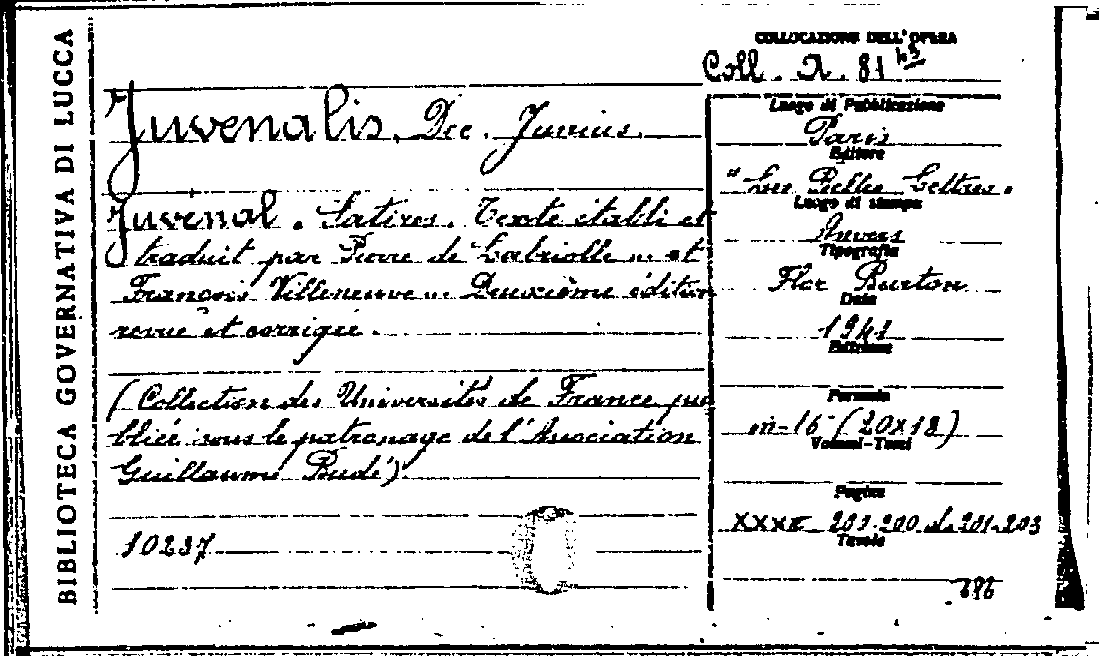 BIBLIOTECA GOVERNATIVA DI LUCCA
COLLOCAZIONE DELL'OPERA
Coll. A. 81
Juvenalis, Dec. Junius.
Juvénal. Satires. Texte établi et
traduit par Pierre de Labriolle ... et
François Villeneuve ... Deuxième édition
revue et corrigée.
(Collection des Universités de France pu
bliée sous le patronage de l'Association
Guillaume Budé)
10237
Luogo di Pubblicazione
Paris
Editore
"Les Belles Lettres"
Luogo di stampa
Anvers
Tipografia
Flor Burton
Data
1941
Edizione
Formato
in-16 - (20x12)
Volumi-Tomi
Pagine
201-203
Tavole